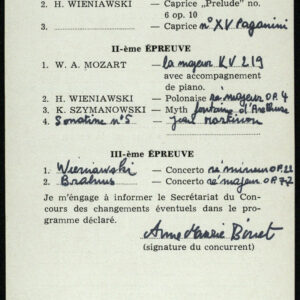 2. H. WIENIAWSKI — Caprice „Prelude" no.
6 op. 10
3. — Caprice n° XV Paganini
II-ème ÉPREUVE
1. W. A. MOZART — la majeur KV 219
avec accompagnement
de piano.
2. H. WIENIAWSKI — Polonaise ré majeur OP. 4
3. K. SZYMANOWSKI — Myth fontaine d'Arethuse
4. Sonatine n° 5 Jean Martinon
III-ème ÉPREUVE
1. Wieniawski — Concerto ré mineur OP. 22
2. Brahms — Concerto ré majeur OP. 77
Je m'engage à informer le Secrétariat du Con-
cours des changements éventuels dans le pro-
gramme déclaré.
Anne Marie
(signature du concurrent)